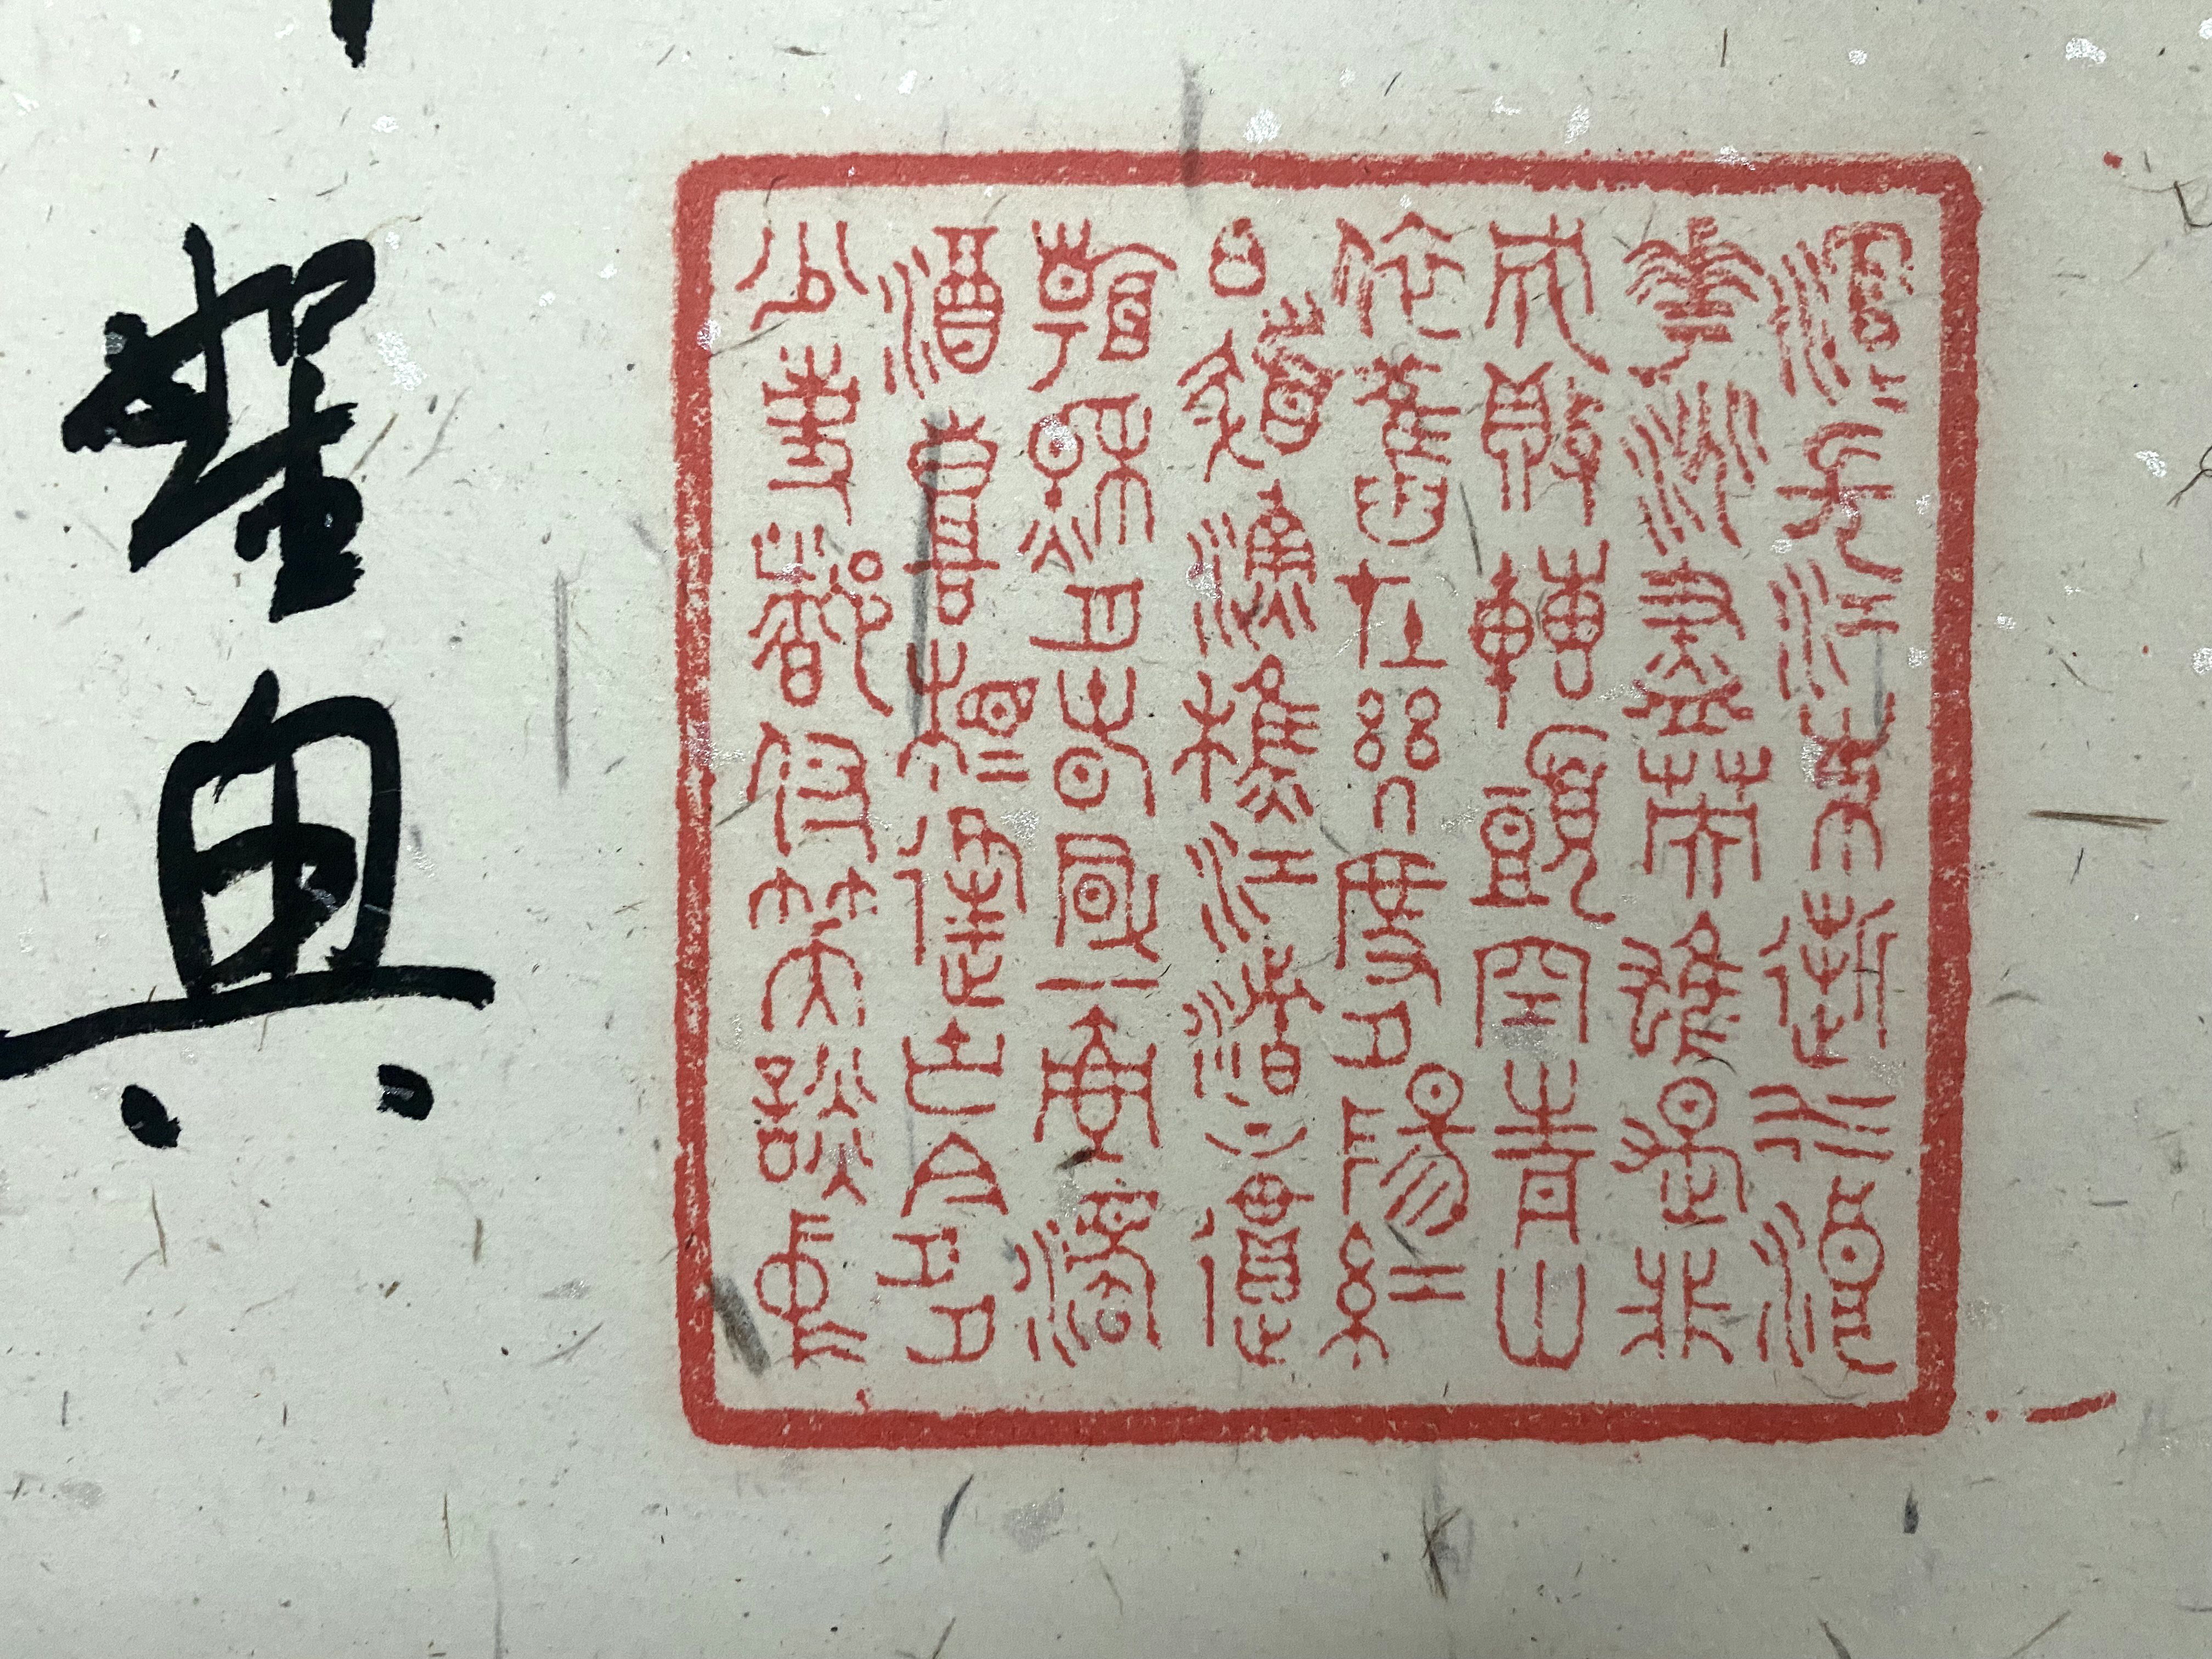 滾=長江東逝水浪
華淘盡英雄是非
成敗轉頭空青山
依舊在幾度夕陽紅
白髮漁樵江渚上慣
看秋月春風一壺濁
酒喜相逢古今多
少事都付笑談中
典